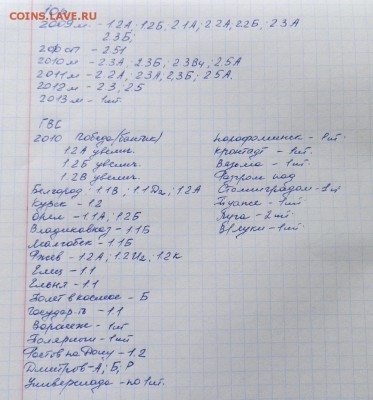 COINS.LAVE.RU
2009м - 1.2А; 1.2Б, 2.1А; 2.2А, 2.2Б, 2.3А
2.3Б;
2009сп - 2.51
2010м - 2.3А, 2.3Б, 2.3В4, 2.5А
2011м - 2.2А, 2.3А, 2.3Б; 2.5А,
2012м - 2.3, 2.5
2013м - 1шт.
ГВС
2010 Победа (бантик)
1.2А увелич.
1.2Б увелич.
1.2В увелич.
Белгород: 1.1В; 1.1Д2; 1.2А
Курск - 1.2
Орел - 1.1А; 1.2Б
Владикавказ - 1.1Б
Малгобек - 1.1Б
Ржев - 1.2А; 1.2И2; 1.2К
Елец - 1.1
Ельня - 1.1
Полет в космос - Б
Государ-ть - 1.1
Воронеж - 1шт
Полярный - 1шт
Ростов на Дону - 1.2
Дмитров - А; Б; Р
Универсиада - по 1шт.
Нарофоминск - 1шт.
Кронштадт - 1шт.
Вязьма - 1шт.
Разгром под
Сталинградом - 1шт
Туапсе - 1шт.
Луга - 2шт.
В Луки - 1шт.